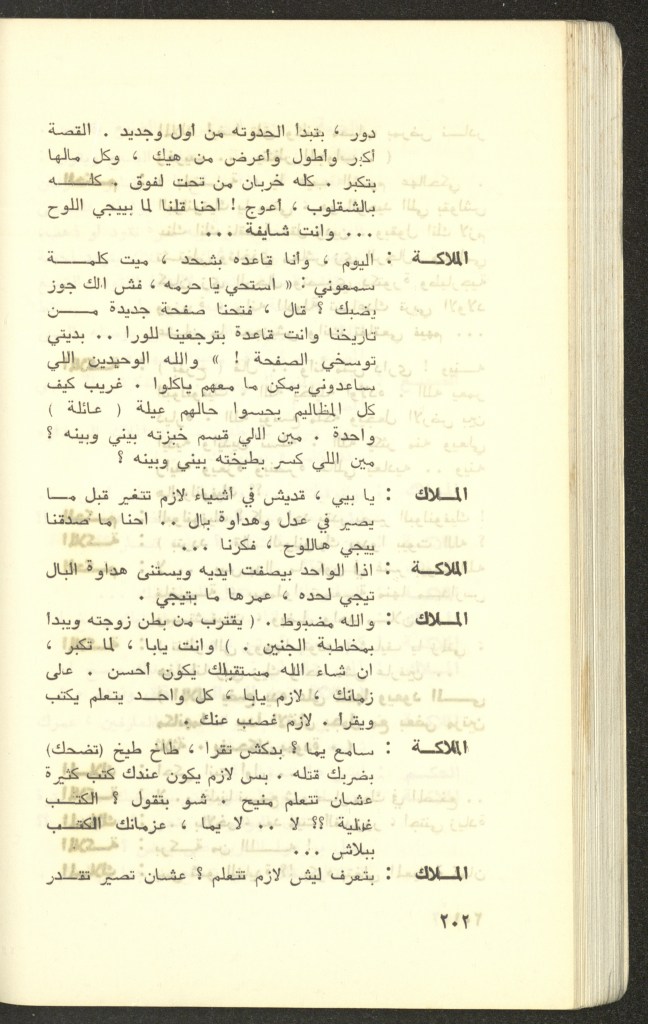 دور ، بتبدا الحدوته من اول وجديد . القصة
اكبر واطول واعرض من هيك ، وكل مالها
بتكبر . كله خربان من تحت لفوق . كلـــه
بالشقلوب ، أعوج ! احنا قلنا لما بييجي اللوح
... وانت شايفة ...
الملاكـة : اليوم ، وانا قاعده بشحد ، ميت كلمـــة
سمعوني : « استحي يا حرمه ، فش الك جوز
يضبك ؟ قال ، فتحنا صفحة جديدة مـــن
تاريخنا وانت قاعدة بترجعينا للورا .. بديتي
توسخي الصفحة ! » والله الوحيدين اللي
ساعدوني يمكن ما معهم ياكلوا . غريب كيف
كل المظاليم بحسوا حالهم عيلة ( عائلة )
واحدة . مين اللي قسم خبزته بيني وبينه ؟
مين اللي كسر بطيخته بيني وبينه ؟
المـلاك : يا بيي ، قديش في أشياء لازم تتغير قبل مـا
يصير في عدل وهداوة بال .. احنا ما صدقنا
ييجي هاللوح ، فكرنا ...
الملاكـة : اذا الواحد بيصفت ايديه ويستنى هداوة البال
تيجي لحده ، عمرها ما بتيجي .
المـلاك : والله مضبوط . ( يقترب من بطن زوجته ويبدا
بمخاطبة الجنين . ) وانت يابا ، لما تكبر ،
ان شاء الله مستقبلك يكون أحسن . على
زمانك ، لازم يابا ، كل واحـد يتعلم يكتب
ويقرا . لازم غصب عنك .
الملاكـة : سامع يما ؟ بدكش تقرا ، طاخ طيخ (تضحك)
بضربك قتله . بس لازم يكون عندك كتب كثيرة
عشان تتعلم منيح . شو بتقول ؟ الكتـب
غالية ؟؟ لا .. لا يما ، عزمانك الكتـب
ببلاش ...
المـلاك : بتعرف ليش لازم تتعلم ؟ عشان تصير تقـدر
٢٠٢